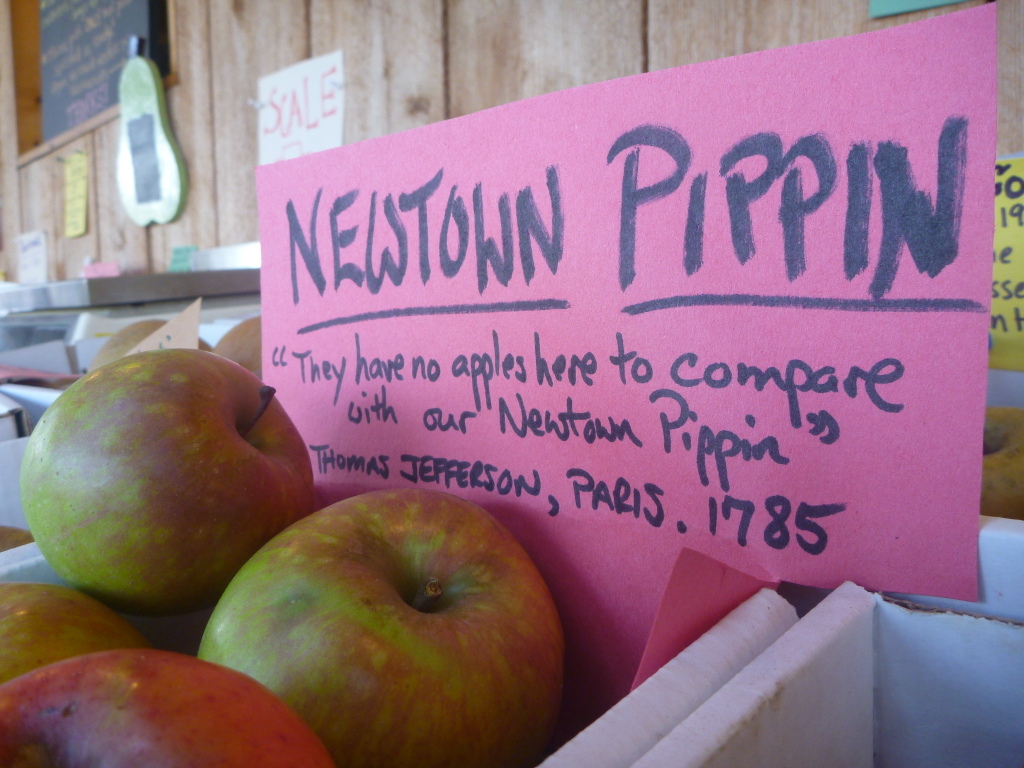 SCALE
NEWTOWN PIPPIN
"They have no apples here to compare
with our Newtown Pippin"
THOMAS JEFFERSON, PARIS. 1785